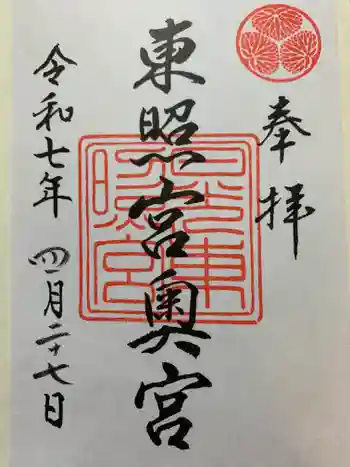 奉拝
東照宮奥宮
令和七年 四月二十七日